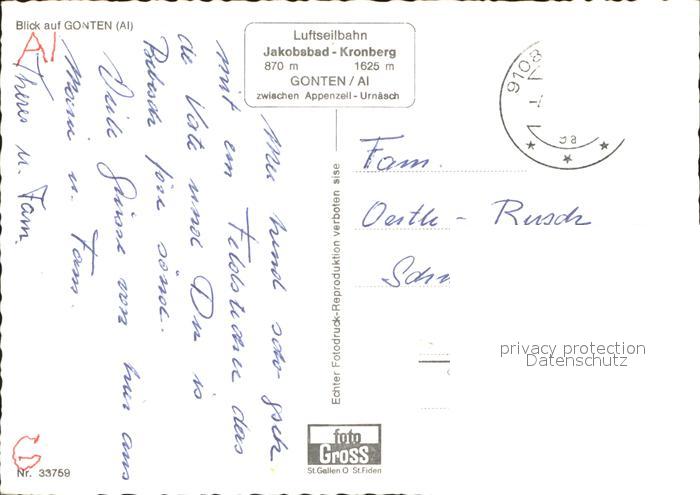 Blick auf GONTEN (AI)
AI
Luftseilbahn
Jakobsbad - Kronberg
870 m 1625 m
GONTEN / AI
zwischen Appenzell - Urnäsch
9108
Mer hend scho gseh
mit em Feldstecher das
de Vater und Du is
före sönd.
Viele Grüsse von hier aus
u. Fam.
Theres u. Fam.
Echter Fotodruck-Reproduktion verboten sise
Fam.
Oertle - Rusch
Sch
privacy protection
Datenschutz
foto
Gross
St.Gallen O St.Fiden
Nr. 33759